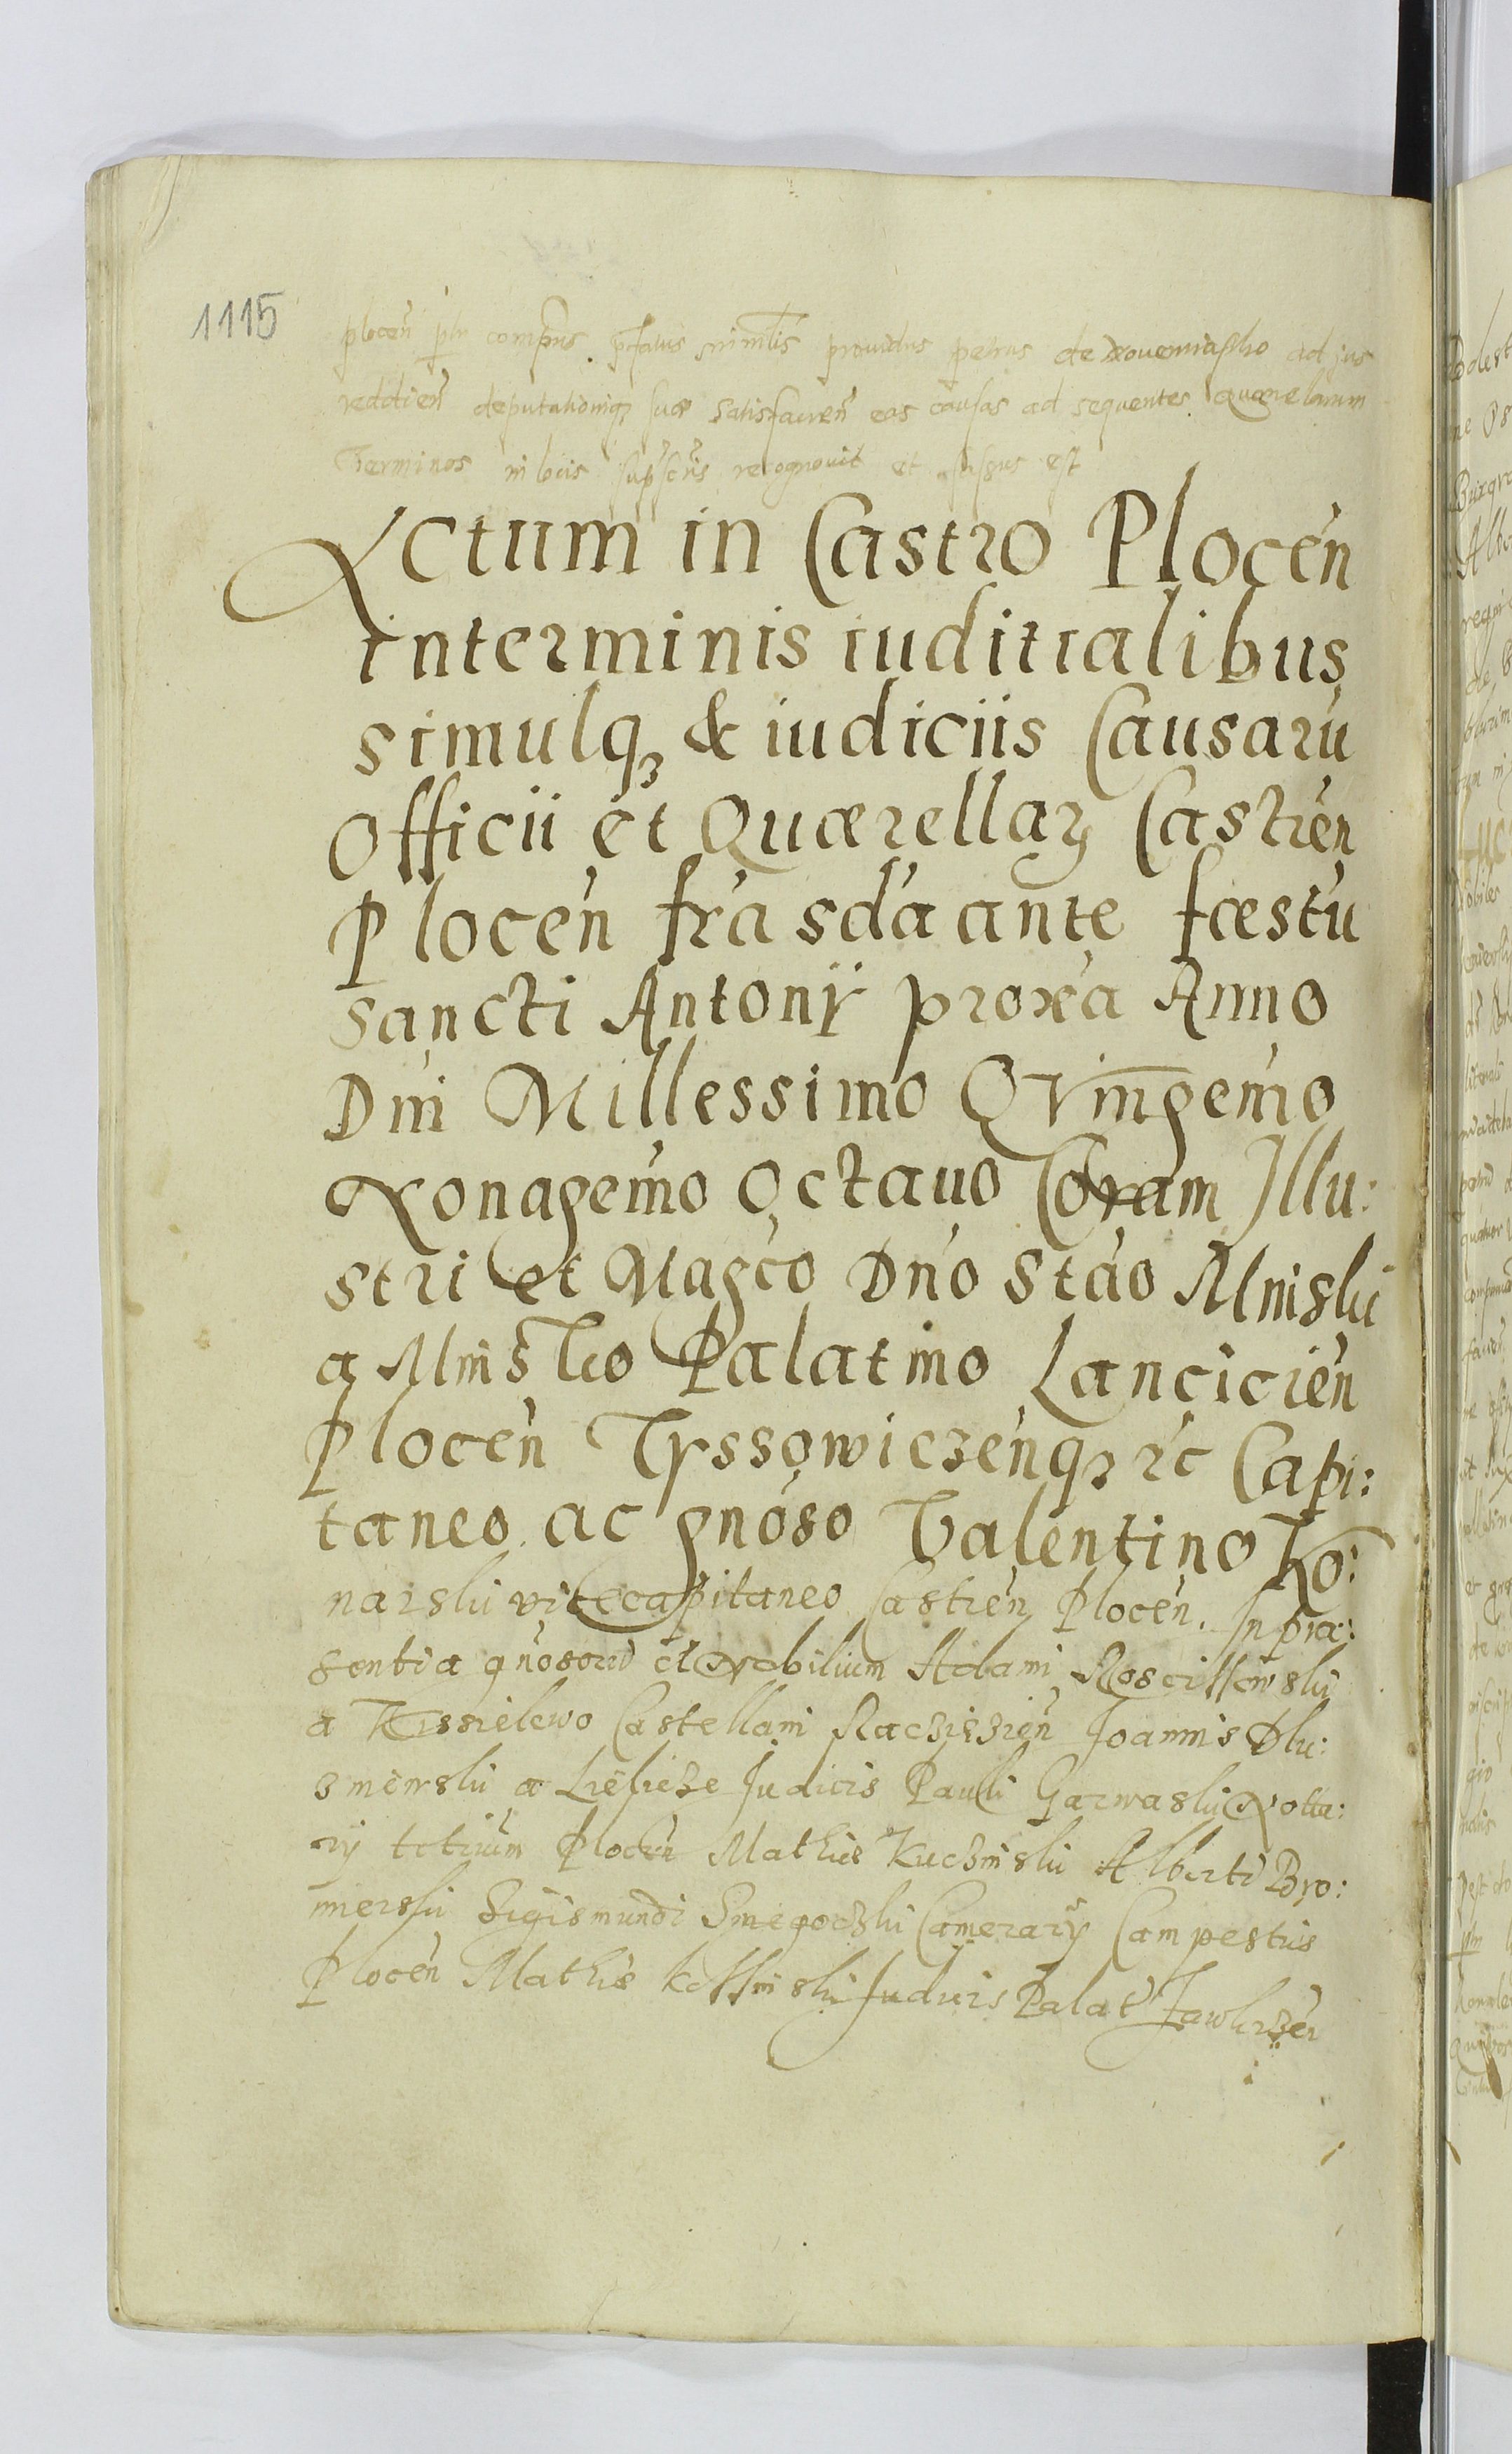 1115
plocen ptr compns prfatus ministlis providus petrus de Novemiastho ad jus
reddien deputationiq suæ satisfacien eas causas ad sequentes Quærelarum
Terminos in locis supscris recognovit et fassus est
Actum in Castro Plocen
in terminis iuditialibus
simulqꝫ & iudiciis Causarū
Officii et Quærellaꝝ Castren
Plocen fr̄a sdā ante fæstū
Sancti Antonÿ proxā Anno
Dni Millessimo Qvīngemo
Nonagemo Octauo Coram Illu:
stri et Magco Dno Stao Mnisky
a Mnisko Palatino Lancicien
Plocen Tyssowiczenqꝫ rc Capi:
taneo ac gnoso Valentino Ko:
narsky vicecapitaneo Castren Plocen. In præ:
sentia gnosorū et Nobilium Adami Rosciszewsky
a Kissielewo Castellani Racziązien Joannis Dlu:
zniewsky a Liebicze Judicis Pauli Garwasky Notta:
rÿ trium Plocen Mathiæ Kuczinsky Alberti Bro:
miersky Sigismundi Smegoczky Camerarÿ Campestris
Plocen Mathiæ Judicis Palat